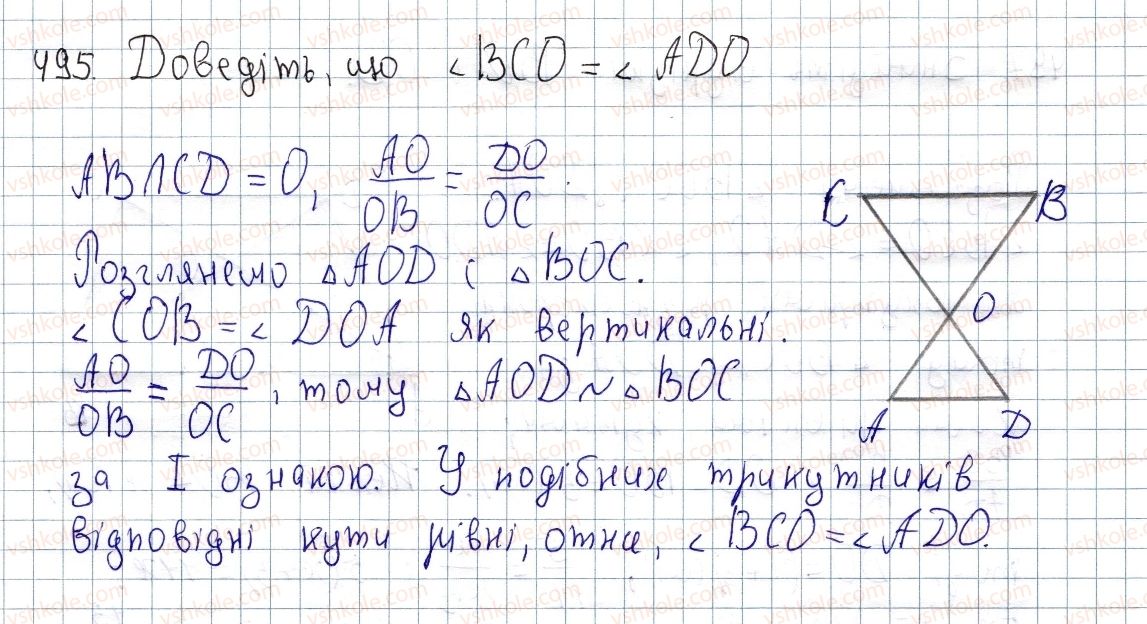 495. Доведіть, що ∠BCO = ∠ADO
AB∩CD = O, AO/OB = DO/OC.
Розглянемо △AOD і △BOC.
∠COB = ∠DOA як вертикальні.
AO/OB = DO/OC, тому △AOD ~ △BOC
за I ознакою. У подібних трикутників
відповідні кути рівні, отже, ∠BCO = ∠ADO.
C B
O
A D
vshkole.com